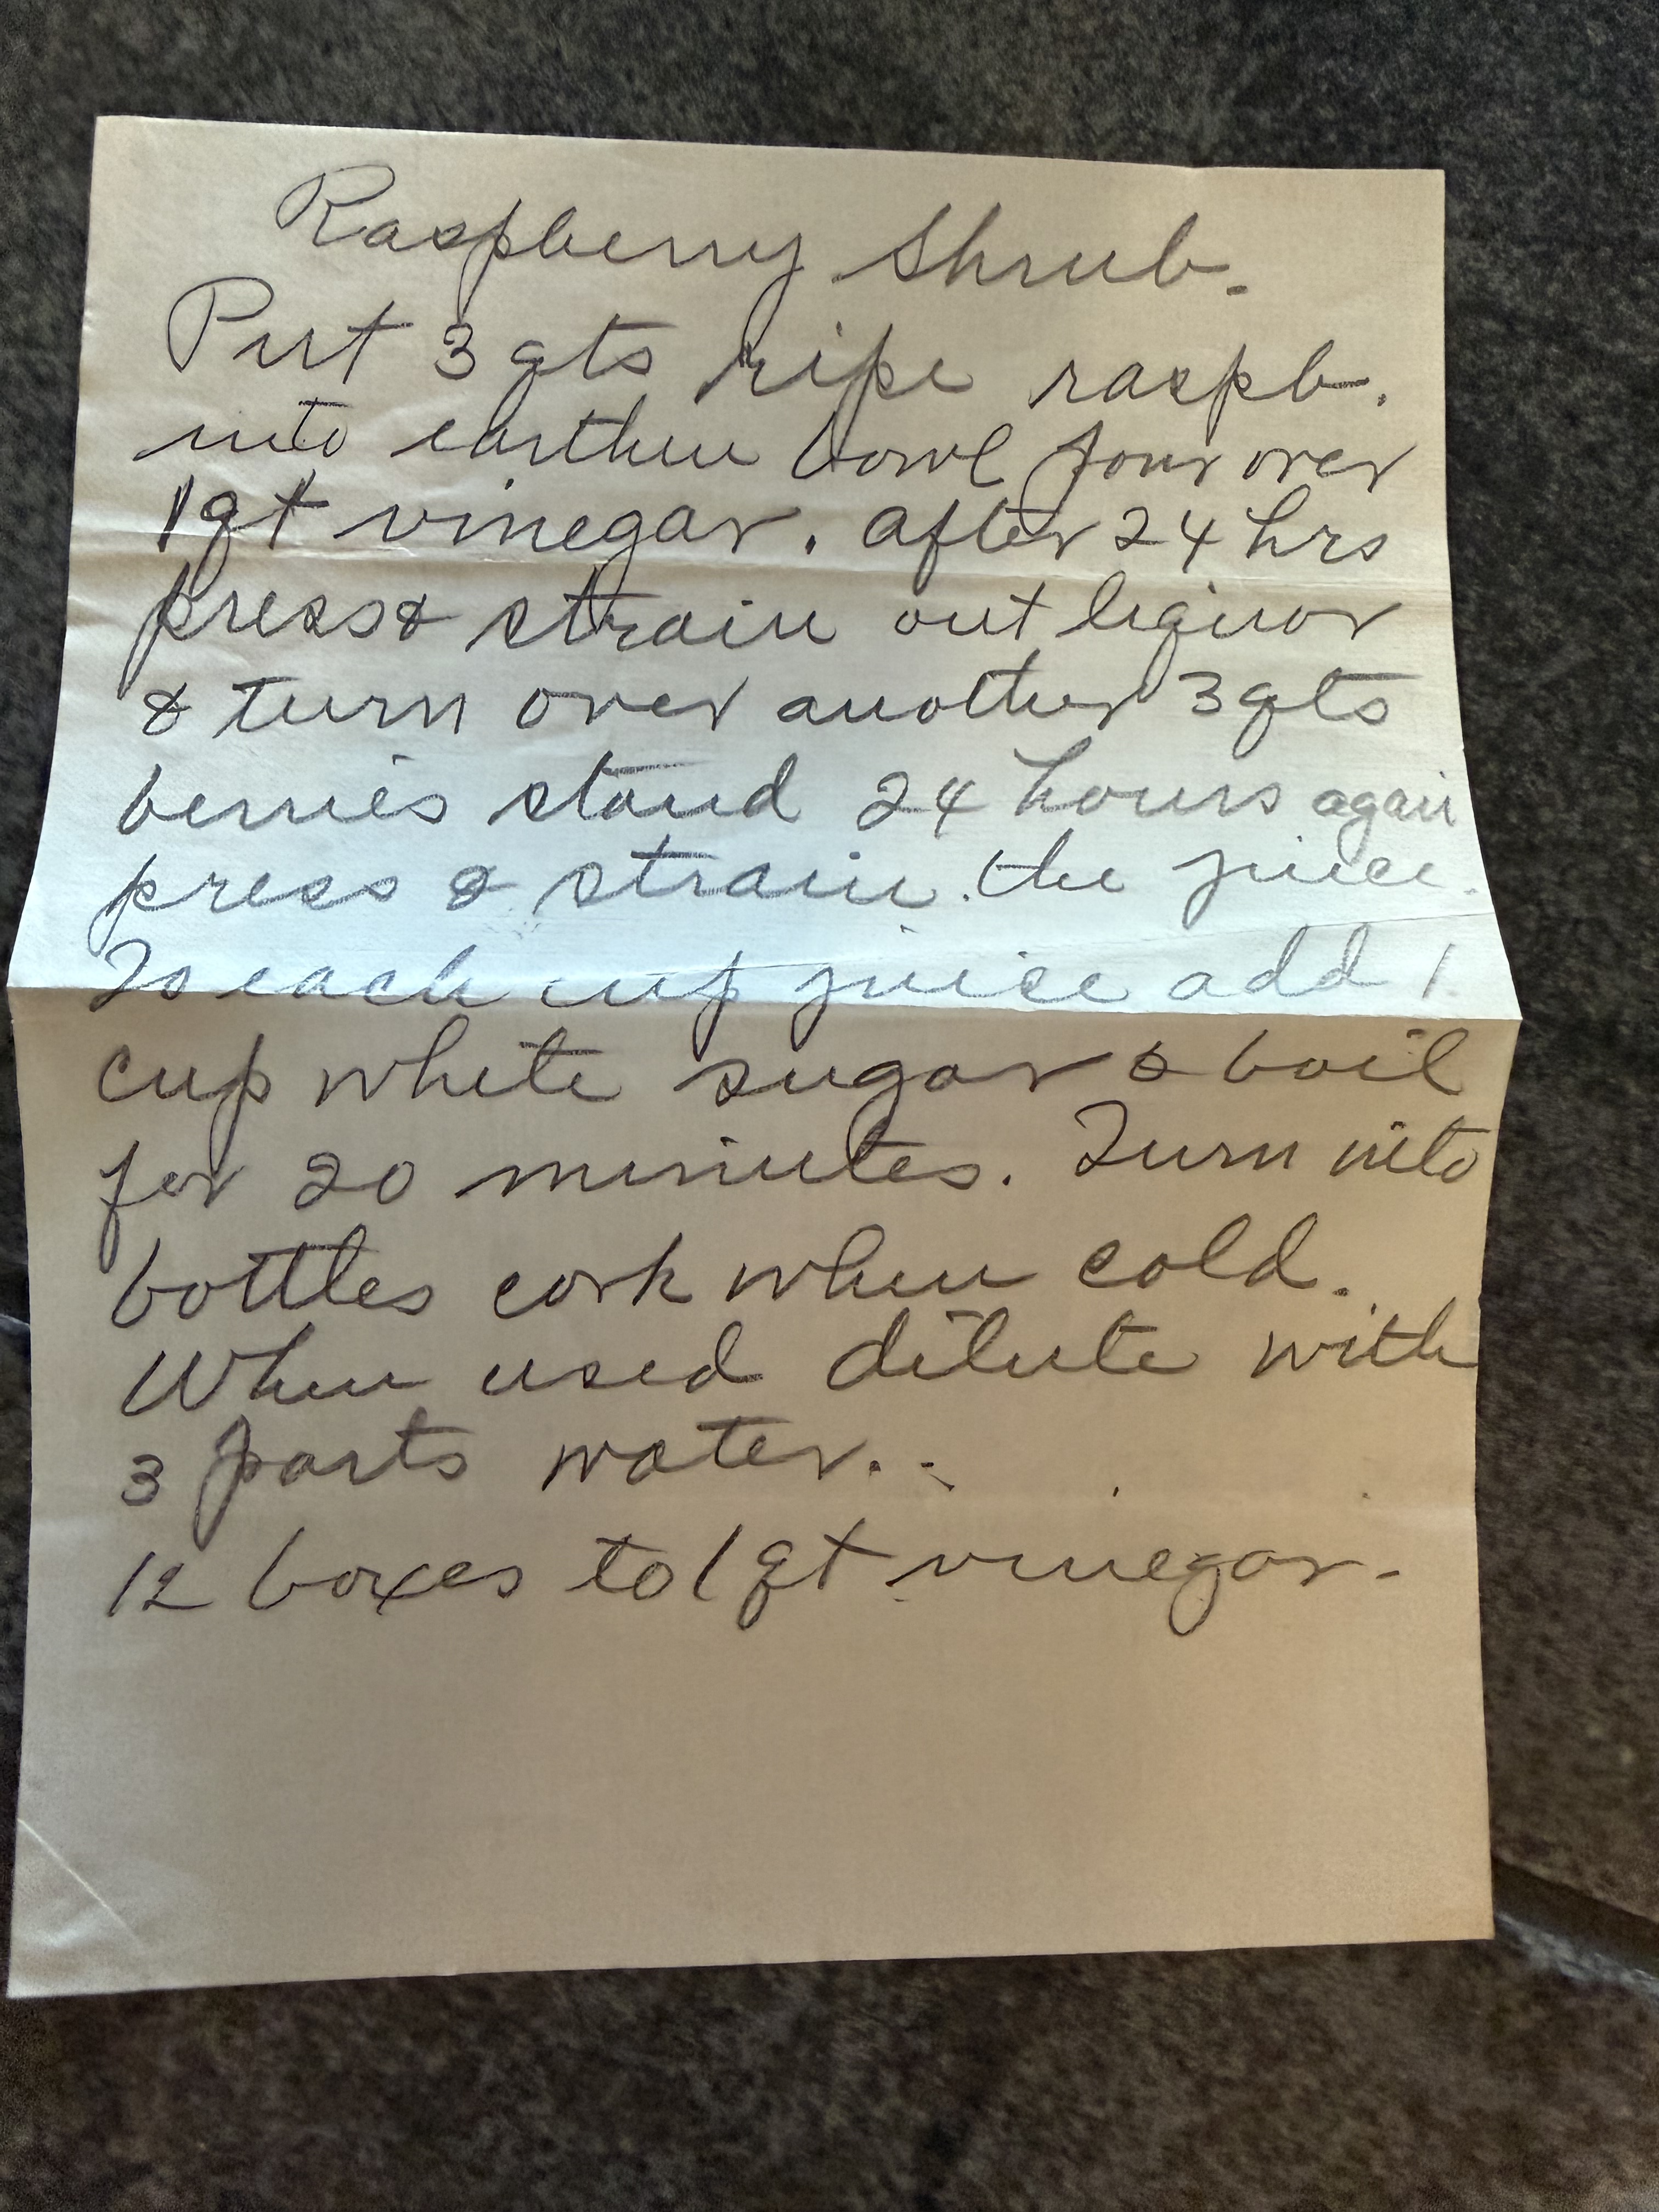 Raspberry Shrub.
Put 3 qts ripe raspb.
into earthen bowl pour over
1 qt vinegar. After 24 hrs
press & strain out liquor
& turn over another 3 qts
berries stand 24 hours again
press & strain. the juice.
To each cup juice add 1
cup white sugar & boil
for 20 minutes. Turn into
bottles cork when cold.
When used dilute with
3 parts water..
12 boxes to 1 qt vinegar.